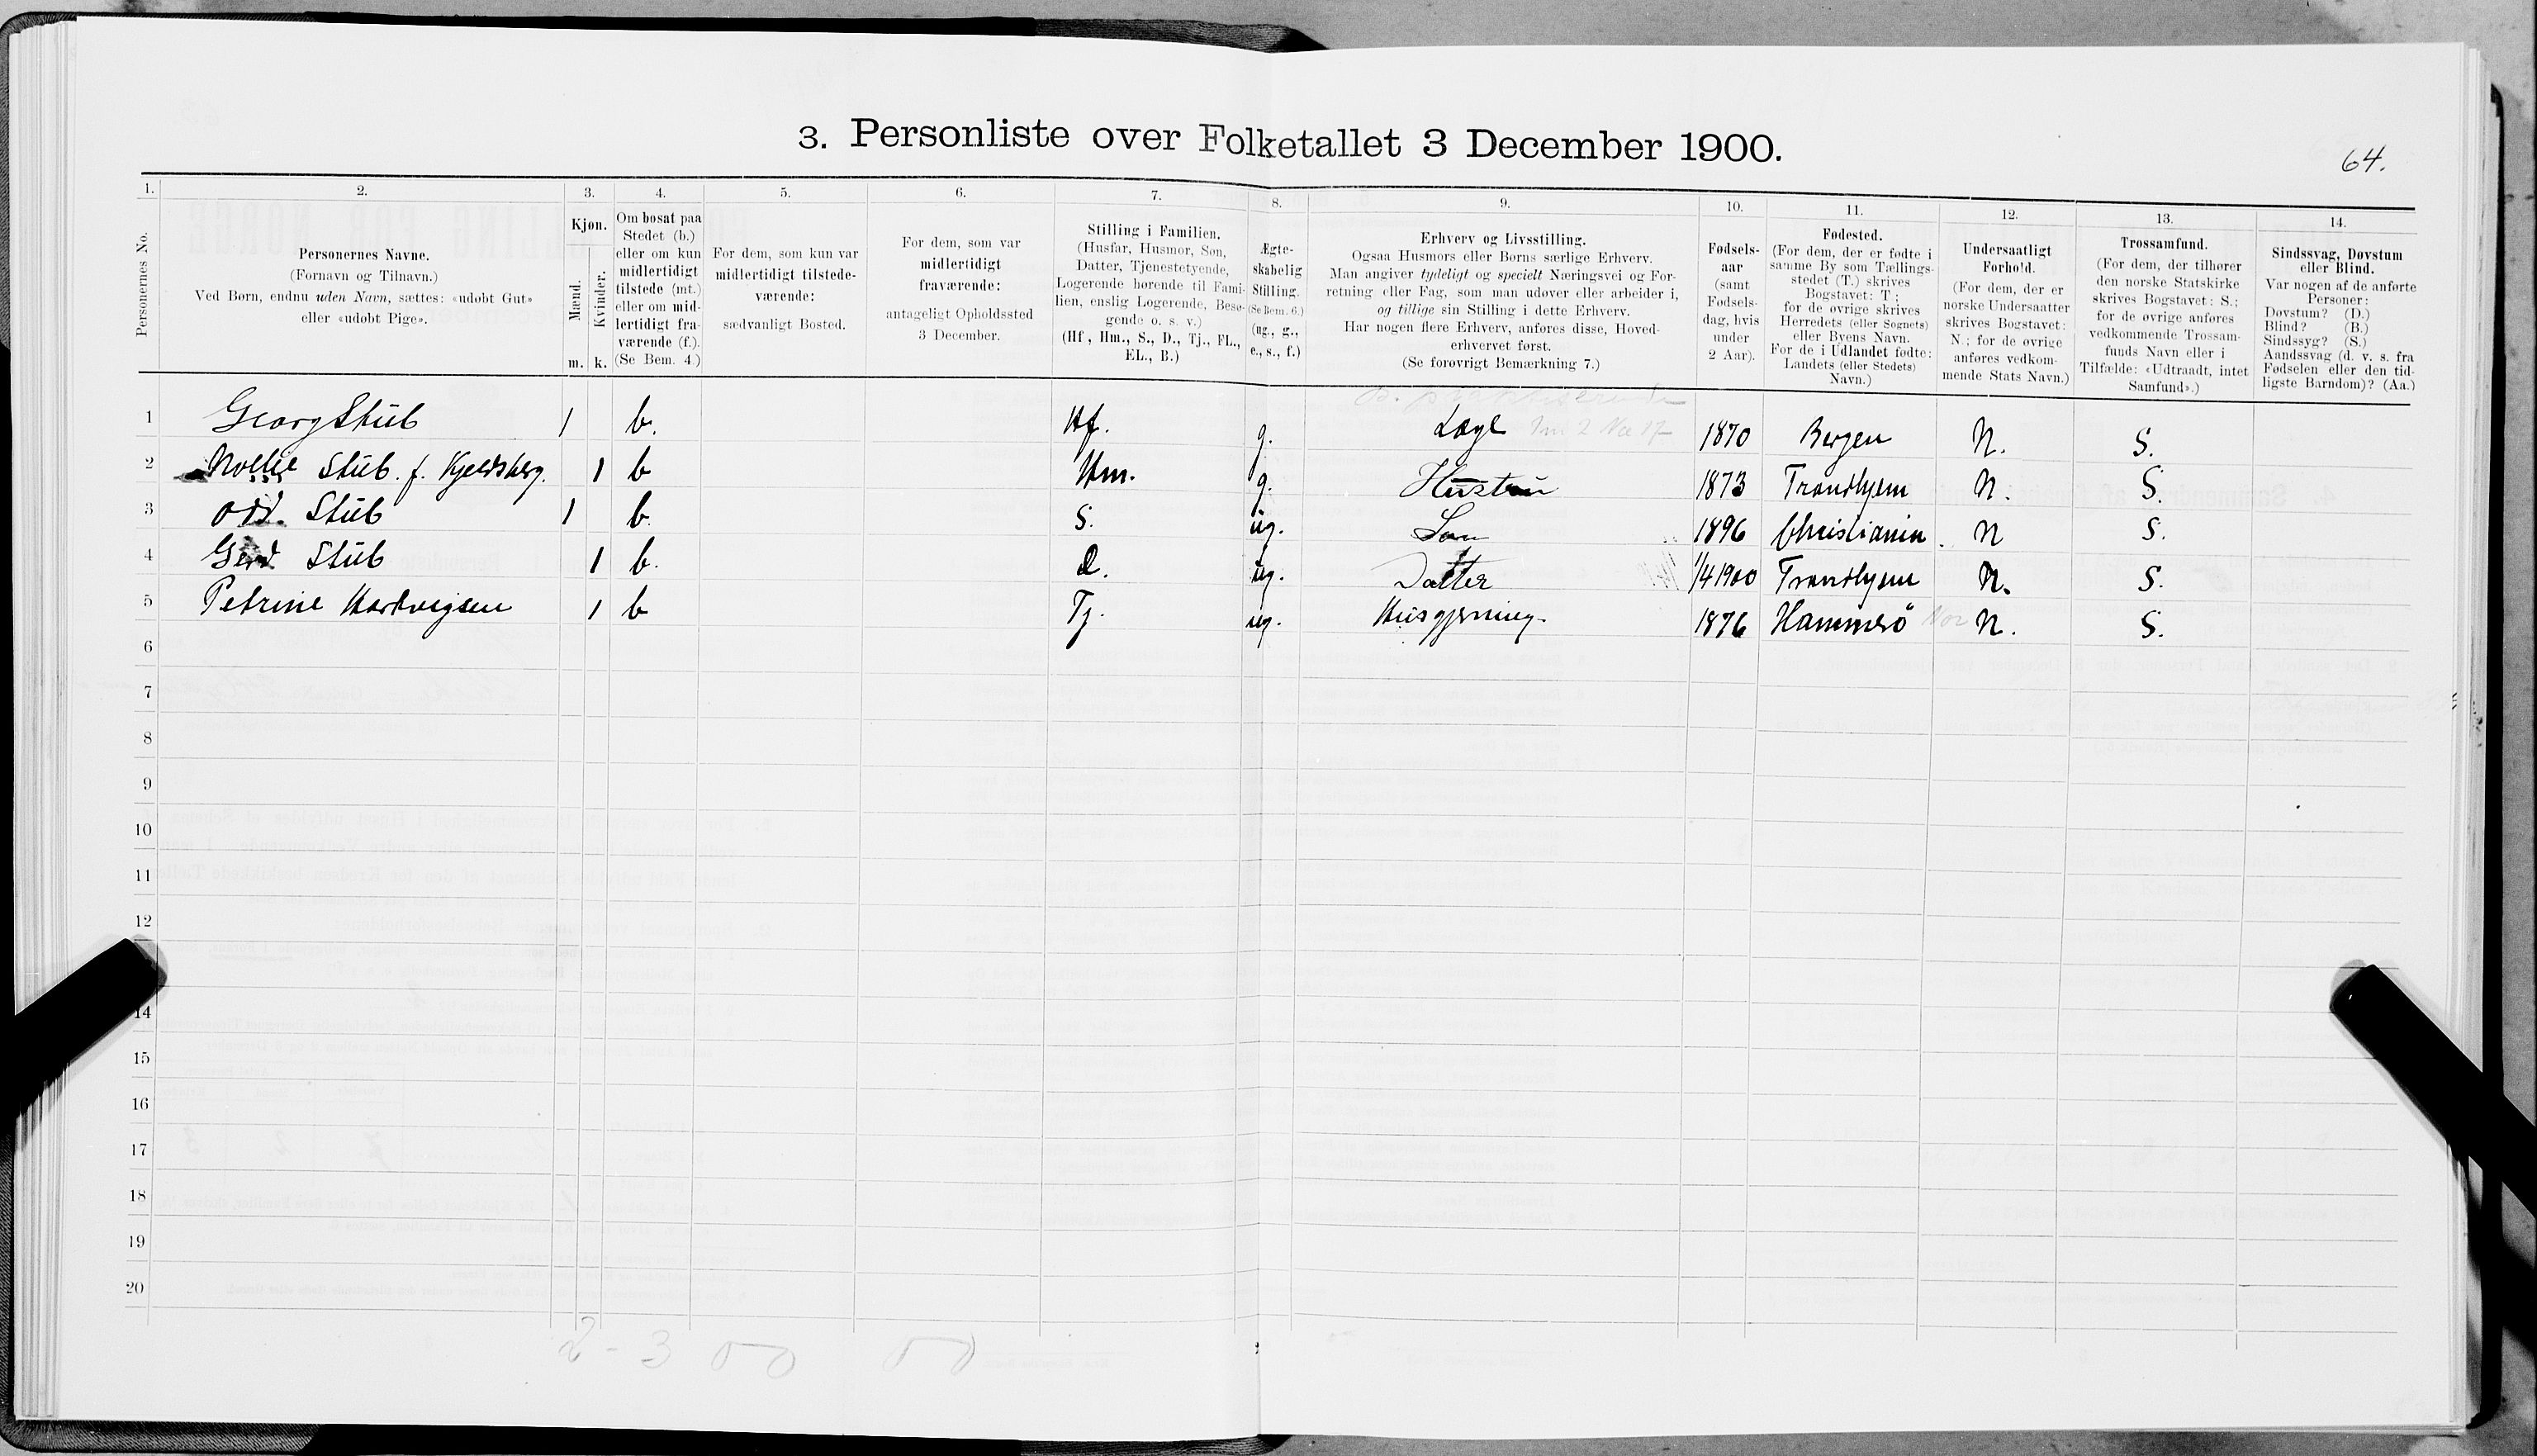 3. Personliste over Folketallet 3 December 1900.
64.
1. 2. 3. 4. 5. 6. 7. 8. 9. 10. 11. 12. 13. 14.
Personernes No.
Personernes Navne.
(Fornavn og Tilnavn.)
Ved Børn, endnu uden Navn, sættes: «udøbt Gut»
eller «udøbt Pige».
Kjøn.
Mænd.
Kvinder.
m. k.
Om bosat paa
Stedet (b.)
eller om kun
midlertidigt
tilstede (mt.)
eller om mid-
lertidigt fra-
værende (f.).
(Se Bem. 4.)
For dem, som kun var
midlertidigt tilstede-
værende:
sædvanligt Bosted.
For dem, som var
midlertidigt
fraværende:
antageligt Opholdssted
3 December.
Stilling i Familien.
(Husfar, Husmor, Søn,
Datter, Tjenestetyende,
Logerende hørende til Fami-
lien, enslig Logerende, Besø-
gende o. s. v.)
(Hf, Hm., S., D., Tj., FL.,
EL., B.)
Ægte-
skabelig
Stilling.
(Se Bem. 6.)
(ug., g.,
e., s., f.)
Erhverv og Livsstilling.
Ogsaa Husmors eller Børns særlige Erhverv.
Man angiver tydeligt og specielt Næringsvei og For-
retning eller Fag, som man udøver eller arbeider i,
og tillige sin Stilling i dette Erhverv.
Har nogen flere Erhverv, anføres disse, Hoved-
erhvervet først.
(Se forøvrigt Bemærkning 7.)
Fødsels-
aar
(samt
Fødsels-
dag, hvis
under
2 Aar).
Fødested.
(For dem, der er fødte i
samme By som Tællings-
stedet (T.) skrives
Bogstavet: T;
for de øvrige skrives
Herredets (eller Sognets)
eller Byens Navn.
For de i Udlandet fødte:
Landets (eller Stedets)
Navn.)
Undersaatligt
Forhold.
(For dem, der er
norske Undersaatter
skrives Bogstavet:
N.; for de øvrige
anføres vedkom-
mende Stats Navn.)
Trossamfund.
(For dem, der tilhører
den norske Statskirke
skrives Bogstavet: S.;
for de øvrige anføres
vedkommende Trossam-
funds Navn eller i
Tilfælde: «Udtraadt, intet
Samfund».)
Sindssvag, Døvstum
eller Blind.
Var nogen af de anførte
Personer:
Døvstum? (D.)
Blind? (B.)
Sindssyg? (S.)
Aandssvag (d. v. s. fra
Fødselen eller den tid-
ligste Barndom)? (Aa.)
1 Georg Stub 1 b. Hf. g. Læge 1870 Bergen N. S.
2 Stub. f. Kjeldsberg. 1 b Hm. g. Hustru 1873 Trondhjem N. S.
3 Odd. Stub 1 b. S. ug. Søn 1896 Christiania. N S.
4 Gerd Stub 1 b. D. ug. Datter 1/4 1900 Trondhjem N. S.
5 Petrine Hartvigsen 1 b Tj. ug. Husgjerning. 1876 Hammerö N. S.
6
7
8
9
10
11
12
14
15
16
17
18
19
20
2 - 3 0 0 0 0